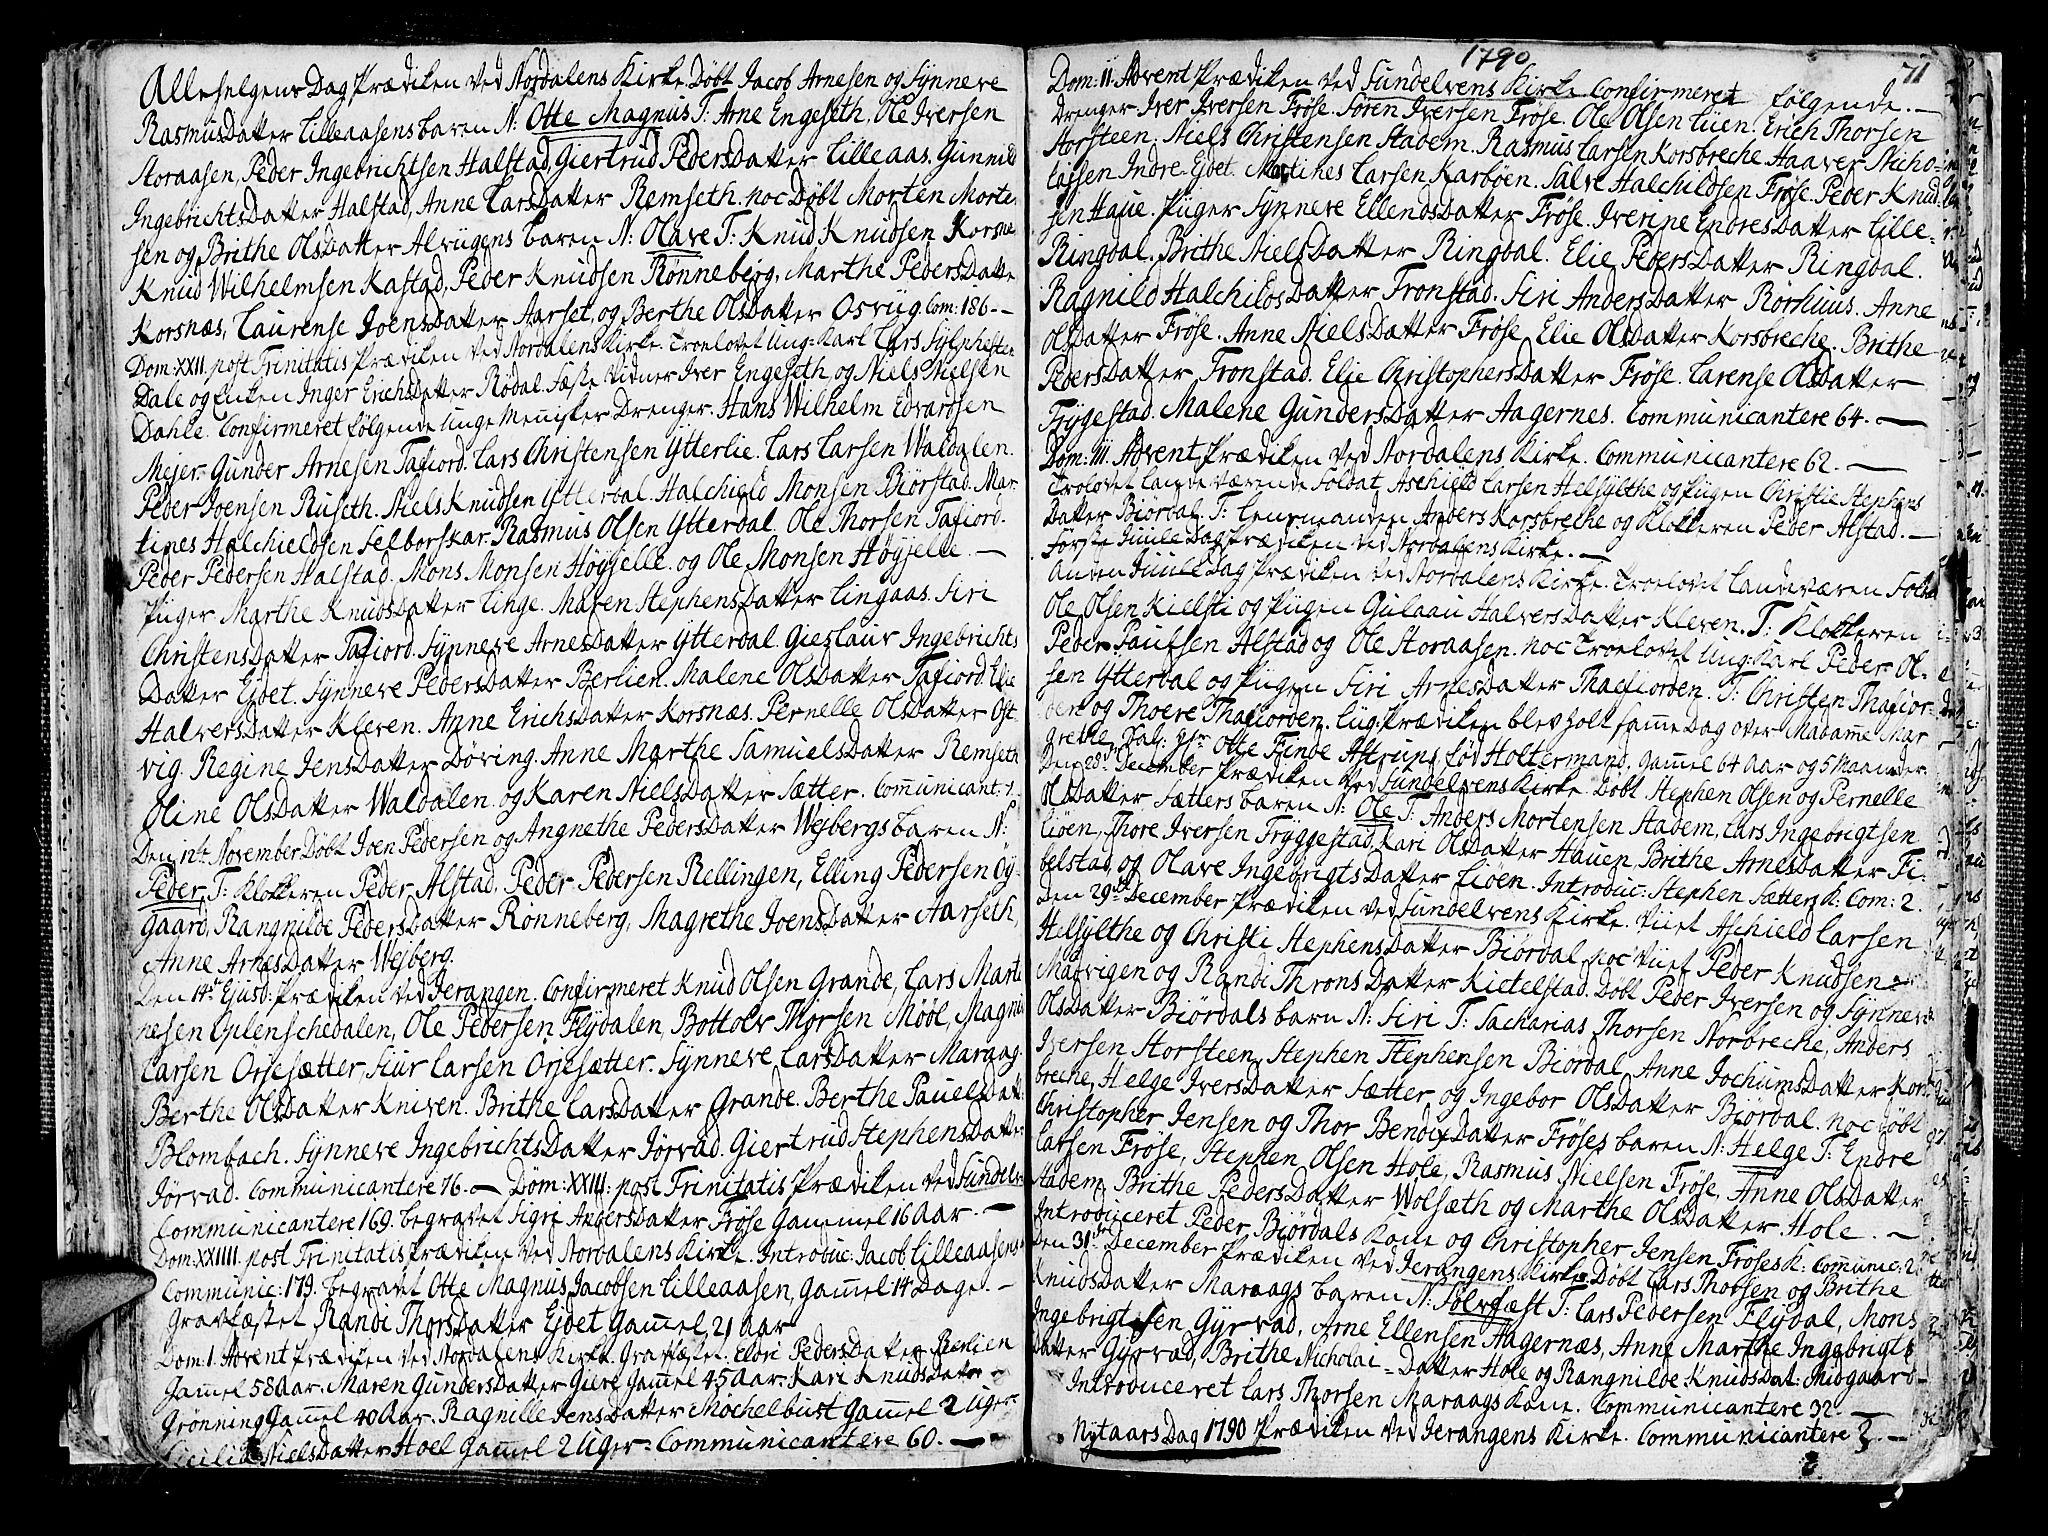 Allehelgens Dag Prædiken ved Nordalens Kirke. Døbt Jacob Arnesen og Synneve
RasmusDatter Lilleaasens baren N: Otte Magnus T: Arne Engeseth, Ole Iversen
Storaasen, Peder Ingebrichtsen Halstad, Giertrud PedersDatter Lilleaas, Gunnild
IngebrichtsDatter Halstad, Anne LarsDatter Remseth. noc Døbt Morten Morten
sen og Brithe OlsDatter Alvügens baren N: Olave T: Knud Knudsen Korsnæs
Knud Wilhelmsen Kastad, Peder Knudsen Rønneberg, Marthe PedersDatter
Korsnæs, Laurense JoensDatter Aarset, og Berthe OlsDatter Osvüg. Com: 186.—
Dom: XXII. post Trinitatis Prædiken ved Nordalens Kirke. Troelovet Ung-Karl Lars Sylphesten
Dale og Enken Inger ErichsDatter Rødal. Fæste Vidner Iver Engeseth og Niels Nielsen
Dahle. Confirmeret følgende Unge Mennisker Drenger. Hans Wilhelm Edvardsen
Mejer. Gunder Arnesen Tafiord. Lars Christensen Ytterlie. Lars Larsen Waldalen.
Peder Joensen Ruseth. Niels Knudsen Ytterdal. Halchield Monsen Biørstad. Mar
tines Halchieldsen Selborskar. Rasmus Olsen Ytterdal. Ole Thorsen Tafiord.
Peder Pedersen Halstad. Mons Monsen Høyjelle. og Ole Monsen Høyjelle. —
Piger. Marthe KnudsDatter Linge. Maren StephensDatter Lingaas. Siri
ChristensDatter Tafiord. Synneve ArnesDatter Ytterdal. Gieslaur Ingebrichts
Datter Ejdet. Synneve PedersDatter Berlien. Malene OlsDatter Tafiord. Elie
HalversDatter Kleven. Anne ErichsDatter Korsnæs. Pernelle OlsDatter Ost
vig. Regine JensDatter Døving. Anne Marthe SamuelsDatter Remseth
Oline OlsDatter Waldalen. og Karen NielsDatter Sætter. Communicant:
Den 11te November Døbt Joen Pedersen og Angnethe PedersDatter Wejbergs baren N:
Peder T: Klokkeren Peder Alstad, Peder Pedersen Rellingen, Elling Pedersen Øy-
gaard, Rangnilde PedersDatter Rønneberg, Magrethe JoensDatter Aarseth,
Anne ArnesDatter Wejberg.
Den 14de Ejusd: Prædiken ved Jerangen. Confirmeret Knud Olsen Grande, Lars Marti
nesen Gplenschedalen, Ole Pedersen Flydalen, Bottolv Thorsen Mööl, Magne
Larsen Orjesætter, Siur Larsen Orjesætter. Synneve LarsDatter Maraag.
Berthe OlsDatter Kniven. Brithe LarsDatter Grande. Berthe PauelsDatt:
Blombach. Synneve IngebrichtsDatter Jørvad. Giertrud StephensDatter
Jørvad. Communicantere 76. — Dom: XXIII: post Trinitatis Prædiken ved Sundelv:
Communicantere 169. Begravet Sigri AndersDatter Frøse Gammel 16 Aar. —
Dom: XXIIII. post Trinitatis Prædiken ved Nordalens Kirke. Introduc: Jacob Lilleaasens
Communic: 179. begravet Otte Magnus Jacobsen Lilleaasen, Gamel 14 Dage. —
Gravfæstet Randi ThorsDatter Ejdet Gamel 21 aar
Dom: 1. Advent Prædiken ved Nordalens Kirke. Gravfæstet. Eldri PedersDatter Berlien
Gamel 58 Aar. Maren GundersDatter Giere Gamel 45 Aar. Kari KnudsDatter
Grønning Gamel 40 Aar. Ragnille JensDatter Møchelbust Gamel 2 Uger.
Cicilia NielsDatter Hoel Gamel 2 Uger. Communicantere 60. —
1790
71
Dom: II. Advent Prædiken ved Sundelvens Kirke Confirmeret følgende. —
Drenger Iver Iversen Frøse. Søren Iversen Frøse. Ole Olsen Lüen. Erich Thorsen
Storsteen. Niels Christensen Stadem. Rasmus Larsen Korsbreche Haaver Nicho-
laisen Indre-Ejdet. Martines Larsen Karbøen. Salve Halchildsen Frøse. Peder Knud
sen Haüe. Piiger Synneve EllendsDatter Frøse. Iverine EndresDatter Lille-
Ringdal. Brithe NielsDatter Ringdal. Elie PedersDatter Ringdal.
Ragnild HalchildsDatter Fronstad. Siri AndersDatter Rørhuus. Anne
OlsDatter Frøse. Anne NielsDatter Frøse Elie OlsDatter Korsbreche. Brithe
PedersDatter Fronstad. Elie ChristophersDatter Frøse. Larense OlsDatter
Trygestad. Malene GundersDatter Aagernes. Communicantere 64. —
Dom: III. Advent Prædiken ved Nordalens Kirke. Communicantere 62. —
Troelovet Landeværende Soldat Aschield Larsen Helsylthe og Piigen Christie Stephens
Datter Biørdal T: Lensmanden Anders Korsbreche og Klokkeren Peder Alstad. —
Første Juule Dag Prædiken ved Nordalens Kirke. —
Anden Juule Dag Prædiken ved Nordalens Kirke. Troelovet Landeværen Solda
Ole Olsen Kielsti og Piigen Gulaau HalversDatter Kleven. T: Klokkeren
Peder Paulsen Alstad og Ole Storaasen. noc Troelovet Ung-Karl Peder Ol-
sen Ytterdal og Piigen Siri ArnesDatter Thafiorden. T: Christen Thafior-
den og Thoere Thafiorden. Liig-Prædiken blev holt samme Dag over Madamme Mar
grethe Sal: Hr Otte Finde Astrups Fød Holtermand. Gamel 64 Aar og 5 Maaneder.
Den 28de December Prædiken ved Sundelvens Kirke. Døbt Stephen Olsen og Pernelle
OlsDatter Sætters baren N: Ole T: Anders Mortensen Stadem, Lars Ingebrigtsen
Liøen, Thore Iversen Tryggestad, Kari OlsDatter Hauen Brithe ArnesDatter Fi-
belstad, og Olave IngebrigtsDatter Liøen. Introduc: Stephen Sætters K: Com: 2.
Den 29de December Prædiken ved Sundelvens Kirke. Viiet Aschield Larsen
Helsylthe og Christi StephensDatter Biørdal, noc viiet Peder Knudsen
Madvigen og Randi ThronsDatter Kietelstad. Døbt Peder Iversen og Synneve
OlsDatter Biørdals barn N: Siri T: Sacharias Thorsen Norbreche, Anders
Iversen Storsteen, Stephen Stephensen Biørdal, Anne JochumsDatter Kors
breche, Helge IversDatter Sætter, og Ingebor OlsDatter Biørdal. noc døbt
Christopher Jensen og Thor BendixDatter Frøses baren N: Helge T: Endre
Larsen Frøse, Stephen Olsen Hole, Rasmus Nielsen Frøse, Anne OlsDatter
Stadem, Brithe PedersDatter Wolsæth og Marthe OlsDatter Hole. —
Introduceret Peder Biørdals Kone og Christopher Jensen Frøses K: Communic: 2
Den 31te December Prædiken ved Jerangens Kirke. Døbt Lars Thorsen og Brithe
KnudsDatter Maraags baren N: Sølvfæst T: Lars Pedersen Flydal, Mons
Ingebrigtsen Gyrvad, Arne Ellensen Aagernæs, Anne Marthe Ingebrigts
Datter Gyrvad, Brithe Nicholai-Datter Hole og Rangnilde KnudsDat: Midgaard
Introduceret Lars Thorsen Maraags Kone. Communicantere 32. —
Nytaars Dag 1790 Prædiken ved Jerangens Kirke. Communicantere 3. —